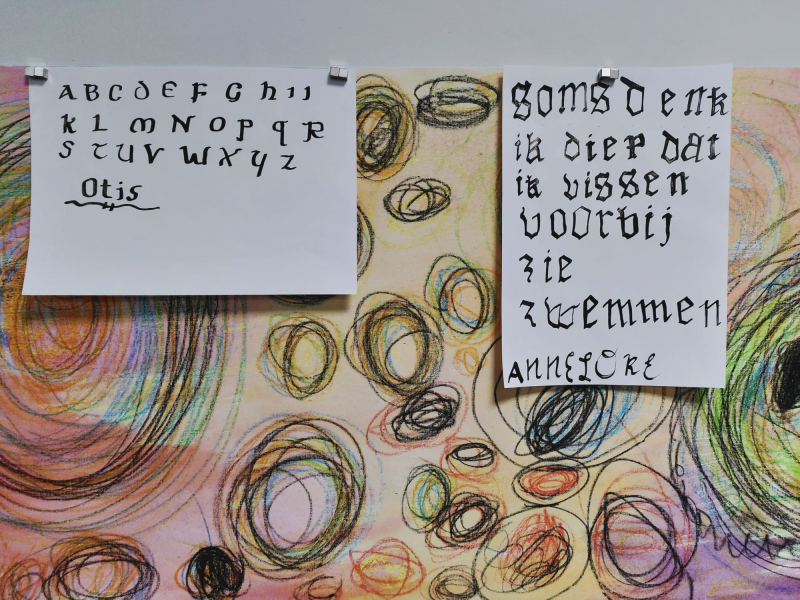 A B C D E F G h i j
K L M N O P q R
S T U V W X y Z
Otis
soms denk
ik dier dat
ik vissen
voorbij
zie
zwemmen
ANNELOKE